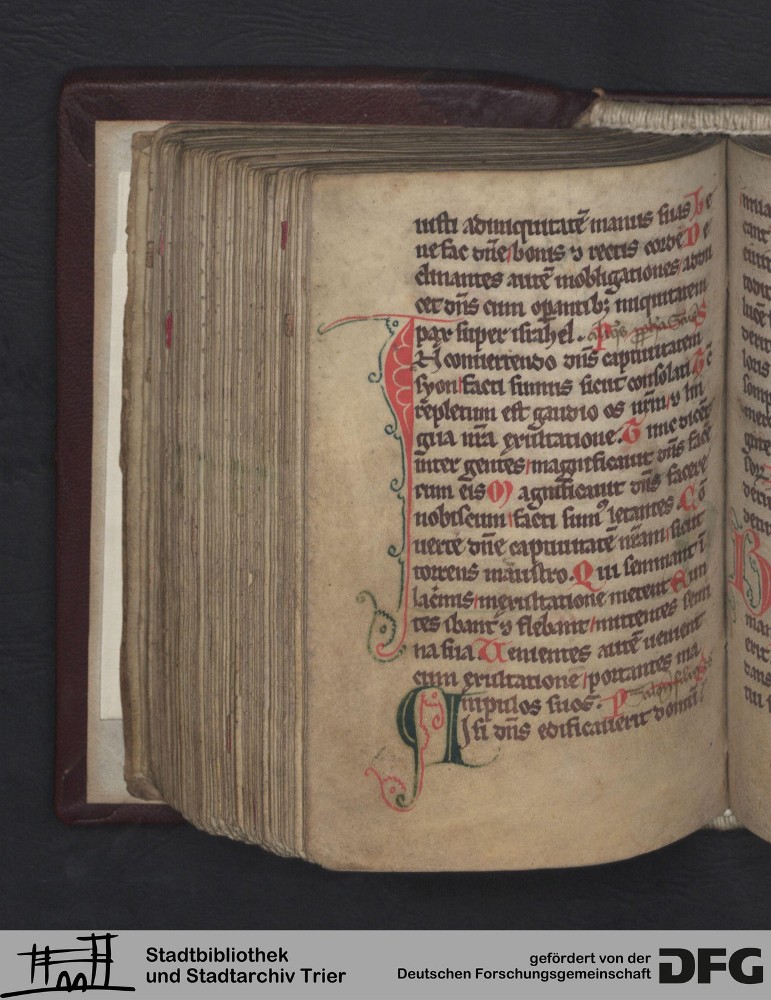 iusti ad iniquitatē manus suas be
ne fac dn̄e bonis ⁊ rectis corde De
clinantes autē in obligationes addu
cet dn̄s cum opantib; iniquitatem
pax super israhel. P
IN conuertendo dn̄s captiuitatem
syon facti sumus sicut consolati
repletum est gaudio os nr̄m ⁊ lin
gua nr̄a exultatione. Tunc dicēt
inter gentes magnificauit dn̄s face
re cum eis Magnificauit dn̄s facere
nobiscum facti sumꝰ letantes Cō
uerte dn̄e captiuitatē nr̄am sicut
torrens in austro. Qui seminant ī
lac̄mis in exultatione metent Eun
tes ibant ⁊ flebant mittentes semi
na sua Uenientes autē uenient
cum exultatione portantes ma
nipulos suos. P
Nisi dn̄s edificauerit domū
Stadtbibliothek
und Stadtarchiv Trier
gefördert von der
Deutschen Forschungsgemeinschaft
DFG